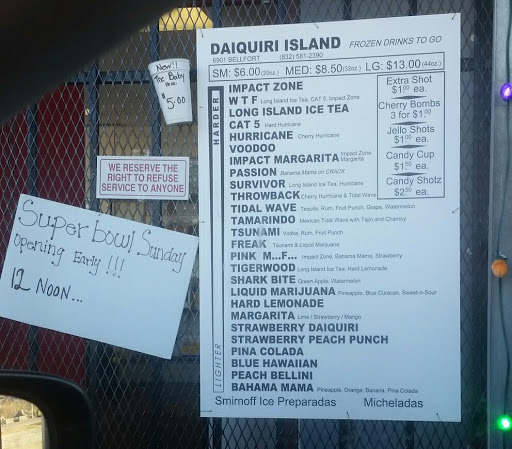 DAIQUIRI ISLAND FROZEN DRINKS TO GO
6901 BELLFORT (832) 581-2390
SM: $6.00 (20oz.) MED: $8.50 (32oz.) LG: $13.00 (44oz.)
HARDER
IMPACT ZONE
W T F Long Island Ice Tea, CAT 5, Impact Zone
LONG ISLAND ICE TEA
CAT 5 Hard Hurricane
HURRICANE Cherry Hurricane
VOODOO
IMPACT MARGARITA Impact Zone Margarita
PASSION Bahama Mama on CRACK
SURVIVOR Long Island Ice Tea, Hurricane
THROWBACK Cherry Hurricane & Tidal Wave
TIDAL WAVE Tequila, Rum, Fruit Punch, Grape, Watermelon
TAMARINDO Mexican Tidal Wave with Tajin and Chamoy
TSUNAMI Vodka, Rum, Fruit Punch
FREAK Tsunami & Liquid Marijuana
PINK M...F... Impact Zone, Bahama Mama, Strawberry
TIGERWOOD Long Island Ice Tea, Hard Lemonade
SHARK BITE Green Apple, Watermelon
LIQUID MARIJUANA Pineapple, Blue Curacao, Sweet-n-Sour
HARD LEMONADE
MARGARITA Lime / Strawberry / Mango
STRAWBERRY DAIQUIRI
STRAWBERRY PEACH PUNCH
PINA COLADA
BLUE HAWAIIAN
PEACH BELLINI
BAHAMA MAMA Pineapple, Orange, Banana, Pina Colada
LIGHTER
Smirnoff Ice Preparadas Micheladas
Extra Shot
$1.00 ea.
Cherry Bombs
3 for $1.00
Jello Shots
$1.00 ea.
Candy Cup
$1.50 ea.
Candy Shotz
$2.50 ea.
New!!
The Baby
$5.00
WE RESERVE THE
RIGHT TO REFUSE
SERVICE TO ANYONE
Super bowl Sunday
Opening Early !!!
12 NOON...